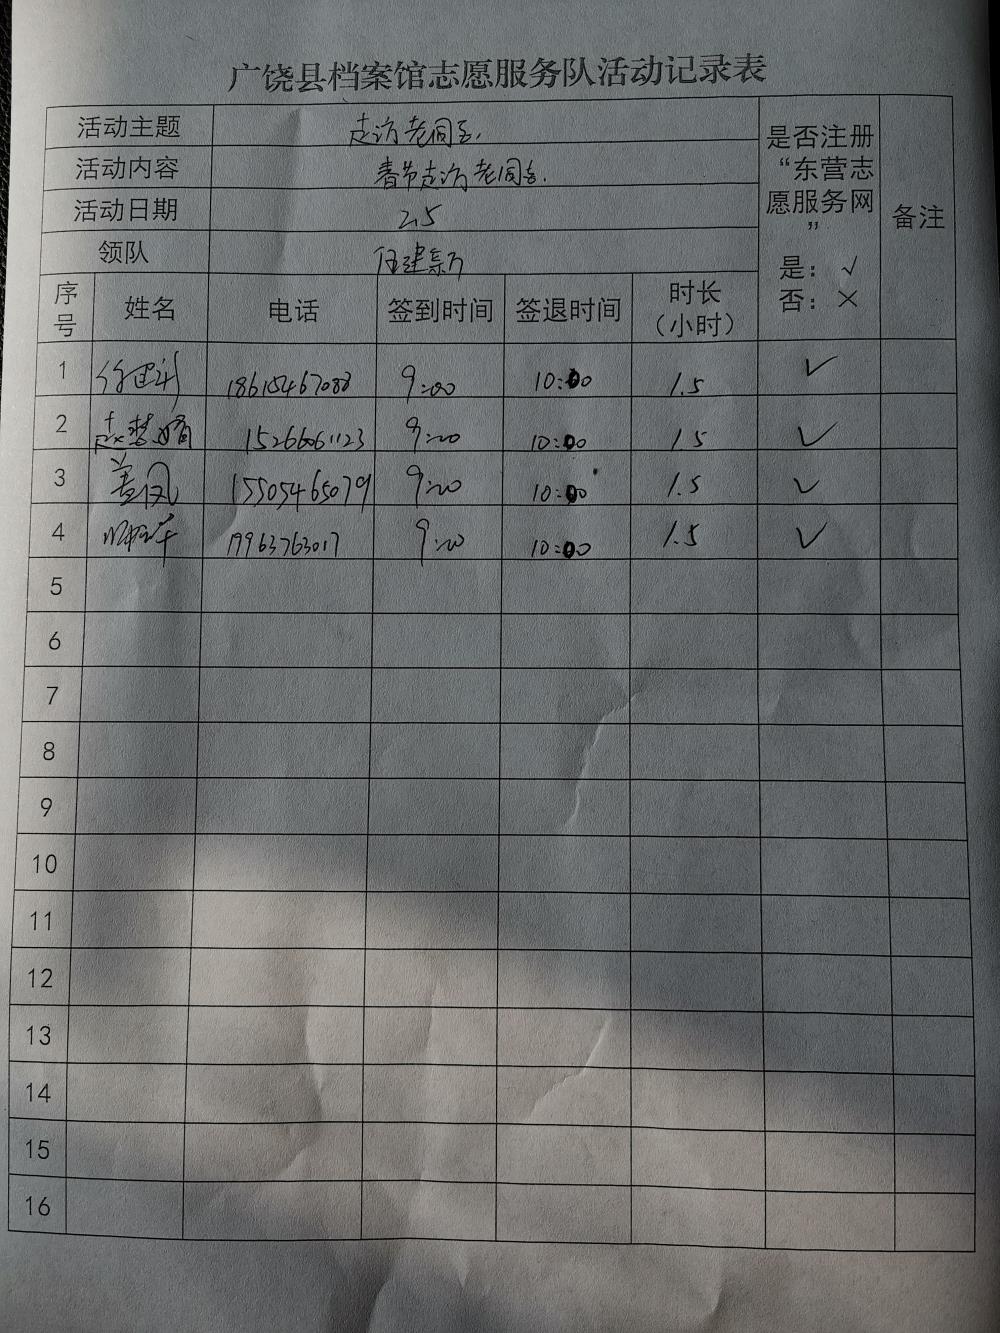 广饶县档案馆志愿服务队活动记录表
活动主题 走访老同志.
活动内容 春节走访老同志.
活动日期 2.5
领队 任建新
是否注册
“东营志
愿服务网
”
是：√
否：×
备注
序号 姓名 电话 签到时间 签退时间 时长（小时）
1 18615467088 9:00 10:00 1.5 ✓
2 赵梦娟 15266061123 9:00 10:00 1.5 ✓
3 盖凤 15505465079 9:00 10:00 1.5 ✓
4 19963763017 9:00 10:00 1.5 ✓
5
6
7
8
9
10
11
12
13
14
15
16